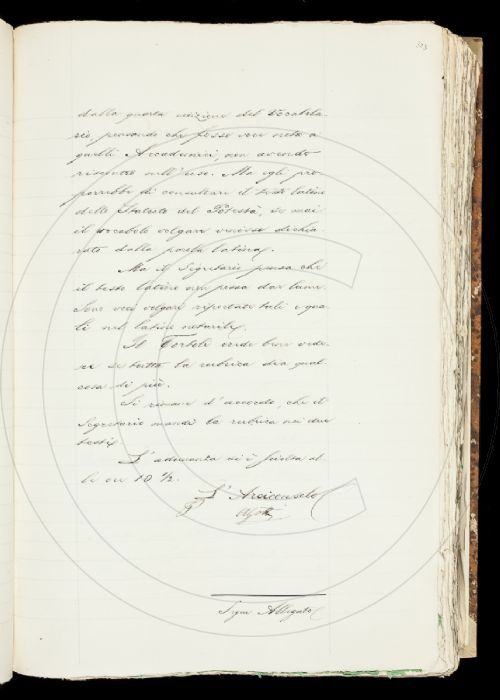 dalla quarta edizione del Vocabola-
rio, pensando che fosse voce nota a
quelli Accademici, non avendo
riscontro nell'uso. Ma egli pro-
porrebbe di consultare il testo latino
dello Statuto del Potestà, se mai
il vocabolo volgare venisse dichia-
rato dalla parola latina.
Ma il Segretario pensa che
il testo latino non possa dar lume.
Sono voci volgari riportate tali e qua-
li nel latino notarile.
Il Tortoli crede bene vede-
re se tutta la rubrica dia qual-
cosa di più.
Si rimane d'accordo, che il
Segretario mandi la rubrica nei due
testi.
L'adunanza si è sciolta al-
le ore 10 1/2.
L'Arciconsolo
Segue Allegato